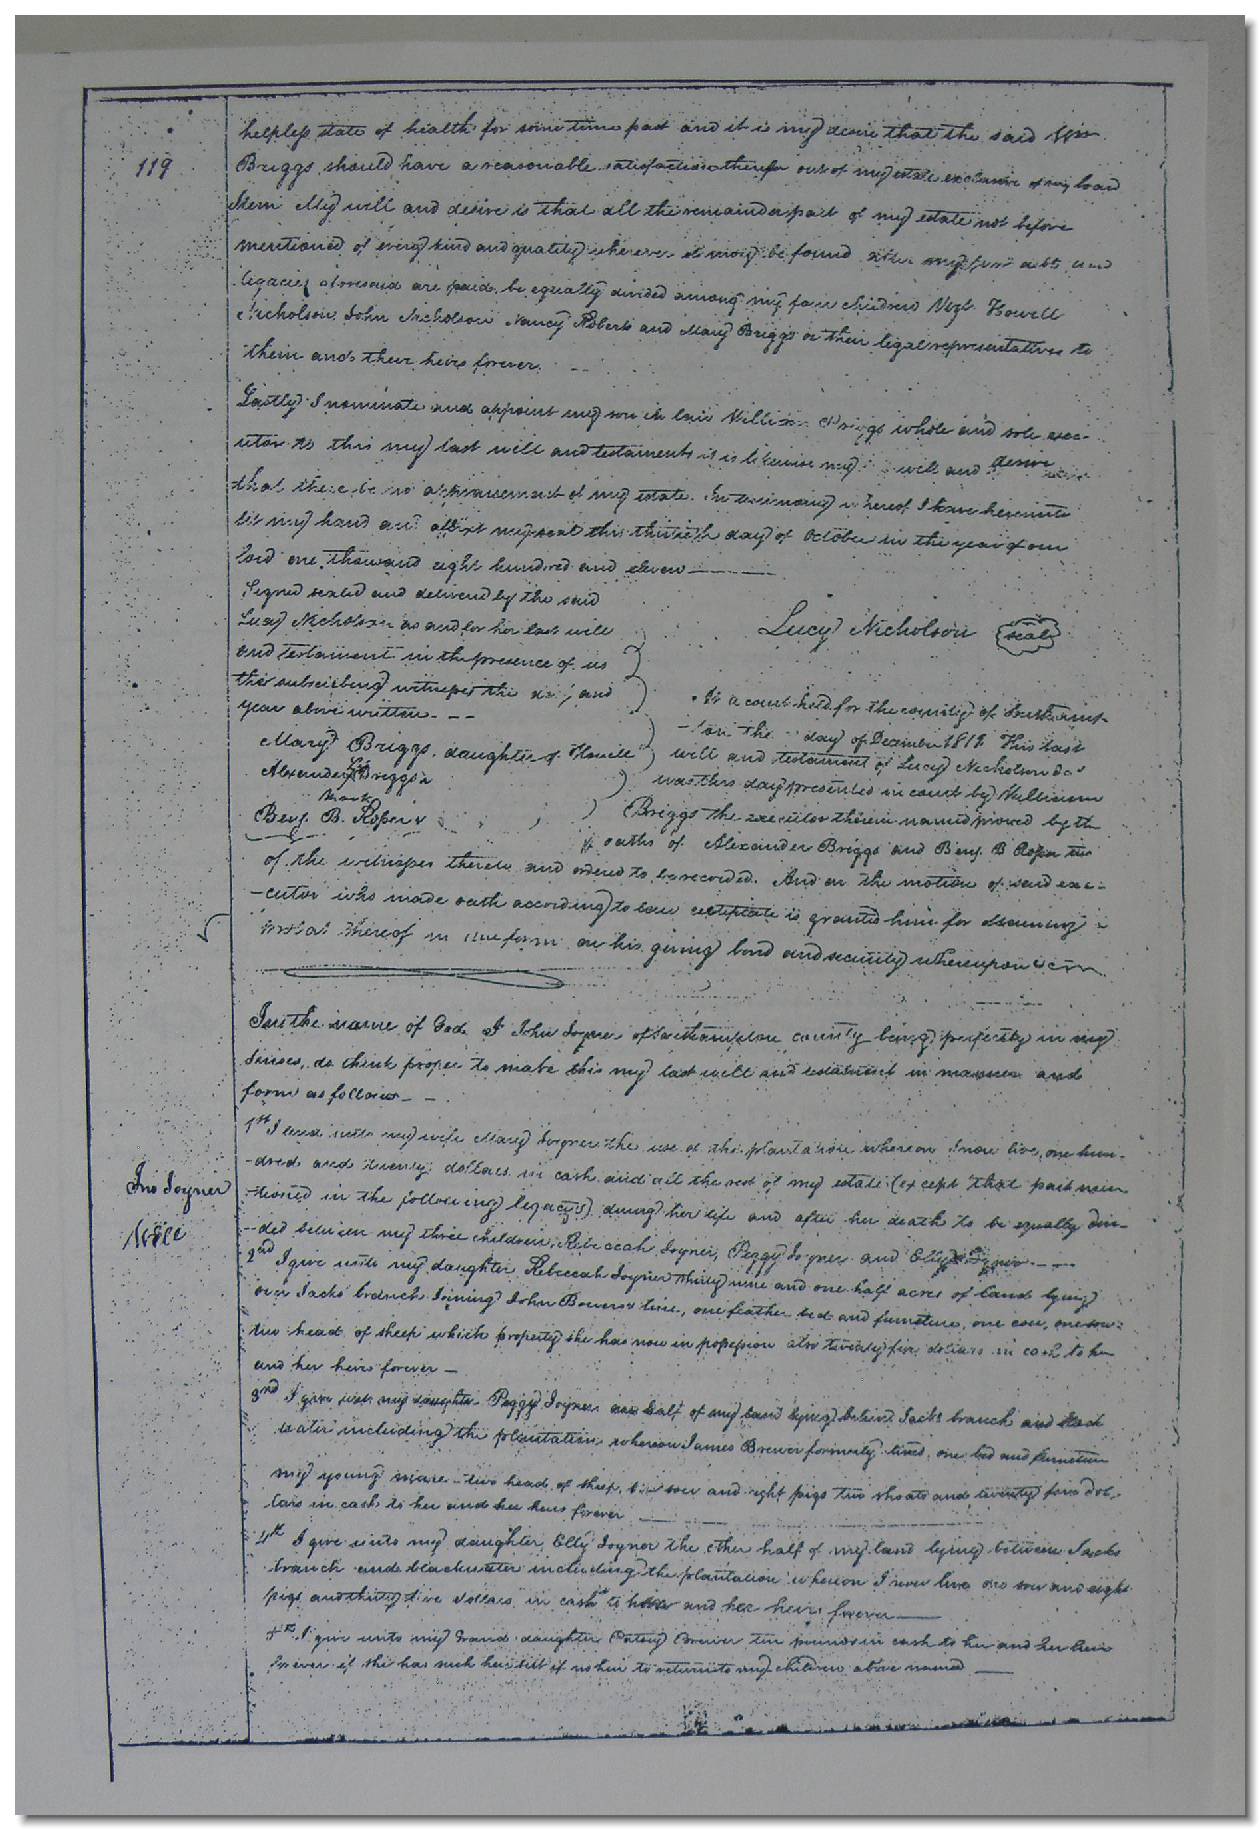 119
helpless state of health for some time past and it is my desire that the said Wm
Briggs should have a reasonable satisfaction therefor out of my estate exclusive of my
Item My will and desire is that all the remainder part of my estate not before
mentioned of every kind and quality wherever it may be found after my just debts and
legacies aforesaid are paid be equally divided among my four children Viz Howell
Nicholson John Nicholson Nancy Roberts and Mary Briggs or their legal representatives to
them and their heirs forever.
Lastly I nominate and appoint my son in law William Briggs whole and sole exec-
utor to this my last will and testament it is likewise my will and desire
that there be no appraisement of my estate. In testimony whereof I have hereunto
set my hand and affixt my seal this thirtieth day of October in the year of our
lord one thousand eight hundred and eleven
Signed sealed and delivered by the said
Lucy Nicholson as and for her last will
and testament in the presence of us
the subscribing witnesses the day and
year above written
Lucy Nicholson seal
Mary Briggs, daughter of Howell
Alexander Briggs
mark
Benj. B. Roper
At a court held for the county of Southamp-
-ton the day of December 1811 This last
will and testament of Lucy Nicholson decd
was this day presented in court by William
Briggs the executor therein named proved by the
oaths of Alexander Briggs and Benj. B Roper two
of the witnesses thereto and ordered to be recorded. And on the motion of said exe-
-cutor who made oath according to law certificate is granted him for obtaining a
probat thereof in due form on his giving bond and security whereupon
Jno Joyner
Will
In the name of God I John Joyner of Southampton county being perfectly in my
senses, do think proper to make this my last will and testament in manner and
form as follows
1st I lend unto my wife Mary Joyner the use of the plantation whereon I now live, one hun-
-dred and twenty dollars in cash and all the rest of my estate (except that part men-
-tioned in the following legacys) during her life and after her death to be equally divi-
-ded between my three children, Rebeccah Joyner, Peggy Joyner and Elly Joyner
2nd I give unto my daughter Rebeccah Joyner thirty nine and one half acres of land lying
over Jacks branch Joining John Bowers line, one feather bed and furniture, one cow, one sow
two head of sheep which property she has now in possession also twenty five dollars in cash to her
and her heirs forever
3rd I give unto my daughter Peggy Joyner one half of my land lying between Jacks branch and black
water including the plantation whereon James Brewer formerly lived, one bed and furniture
my young mare two head of sheep, one sow and eight pigs two shoats and twenty five dol-
lars in cash to her and her heirs forever
4th I give unto my daughter Elly Joyner the other half of my land lying between Jacks
branch and blackwater including the plantation whereon I now live one sow and eight
pigs and thirty five dollars in cash to her and her heirs forever
I give unto my Grand daughter Patsy Brewer ten pounds in cash to her and her heirs
forever if she has such heirs but if no heir to return to my children above named